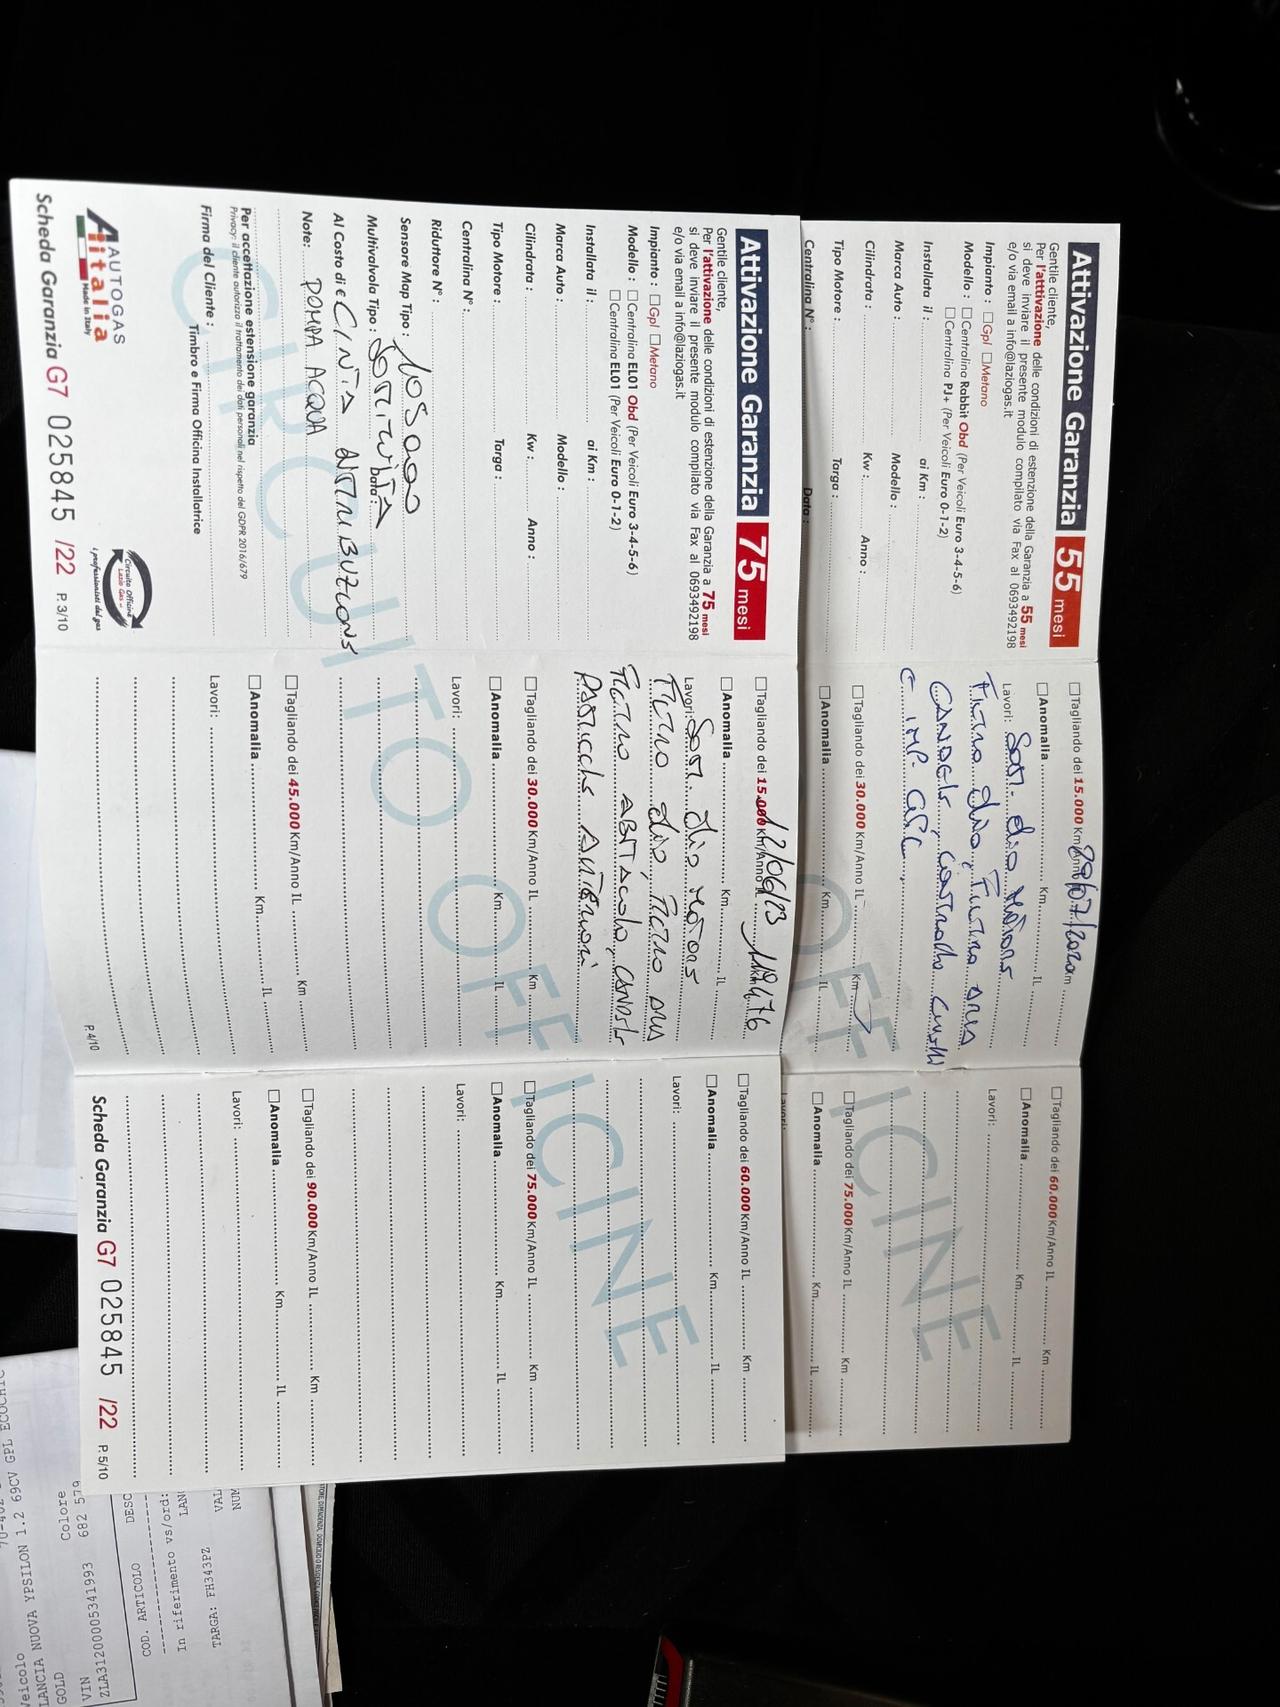 Attivazione Garanzia 55 mesi
Gentile cliente,
Per l'atttivazione delle condizioni di estenzione della Garanzia a 55 mesi
si deve inviare il presente modulo compilato via Fax al 0693492198
e/o via email a info@laziogas.it
Impianto : Gpl Metano
Modello : Centralina Rabbit Obd (Per Veicoli Euro 3-4-5-6)
Centralina PJ+ (Per Veicoli Euro 0-1-2)
Installata il : ai Km :
Marca Auto : Modello :
Cilindrata : Kw : Anno :
Tipo Motore : Targa :
Centralina N° : Data :
Tagliando dei 15.000 Km/Anno 29/07/2020
Anomalia Km. IL
Lavori: Sost. olio motore
Filtro olio, Filtro aria
candele, controllo cinghia
e imp. GPL
Tagliando dei 30.000 Km/Anno IL Km
Anomalia Km. IL
Tagliando dei 60.000 Km/Anno IL Km
Anomalia Km. IL
Lavori:
Tagliando dei 75.000 Km/Anno IL Km
Anomalia Km. IL
Lavori:
Attivazione Garanzia 75 mesi
Gentile cliente,
Per l'attivazione delle condizioni di estenzione della Garanzia a 75 mesi
si deve inviare il presente modulo compilato via Fax al 0693492198
e/o via email a info@laziogas.it
Impianto : Gpl Metano
Modello : Centralina EL01 Obd (Per Veicoli Euro 3-4-5-6)
Centralina EL01 (Per Veicoli Euro 0-1-2)
Installata il : ai Km :
Marca Auto : Modello :
Cilindrata : Kw : Anno :
Tipo Motore : Targa :
Centralina N° :
Riduttore N° :
Sensore Map Tipo : 105000
Multivalvola Tipo : sostituita Data :
Al Costo di € CINTA DISTRIBUZIONE
Note: POMPA ACQUA
Per accettazione estensione garanzia
Privacy: il cliente autorizza il trattamento dei dati personali nel rispetto del GDPR 2016/679
Firma del Cliente : Timbro e Firma Officina Installatrice
AUTOGAS
italia
Made in Italy
Circuito Officine
Lazio Gas
i professionisti del gas
Scheda Garanzia G7 025845 /22 P. 3/10
Tagliando dei 15.000 Km/Anno IL 12/06/23 119476
Anomalia Km. IL
Lavori: Sost. olio motore
Filtro olio, Filtro aria
Filtro abitacolo, candele
Pasticche anteriori
Tagliando dei 30.000 Km/Anno IL Km
Anomalia Km. IL
Lavori:
Tagliando dei 45.000 Km/Anno IL Km
Anomalia Km. IL
Lavori:
P. 4/10
Tagliando dei 60.000 Km/Anno IL Km
Anomalia Km. IL
Lavori:
Tagliando dei 75.000 Km/Anno IL Km
Anomalia Km. IL
Lavori:
Tagliando dei 90.000 Km/Anno IL Km
Anomalia Km. IL
Lavori:
Scheda Garanzia G7 025845 /22 P. 5/10
CIRCUITO OFFICINE
OFFICINE
Veicolo
LANCIA NUOVA YPSILON 1.2 69CV GPL ECOCHIC
GOLD Colore
VIN 682 579
ZLA31200005341993
COD. ARTICOLO DESC
In riferimento vs/ord:
TARGA: FH343PZ